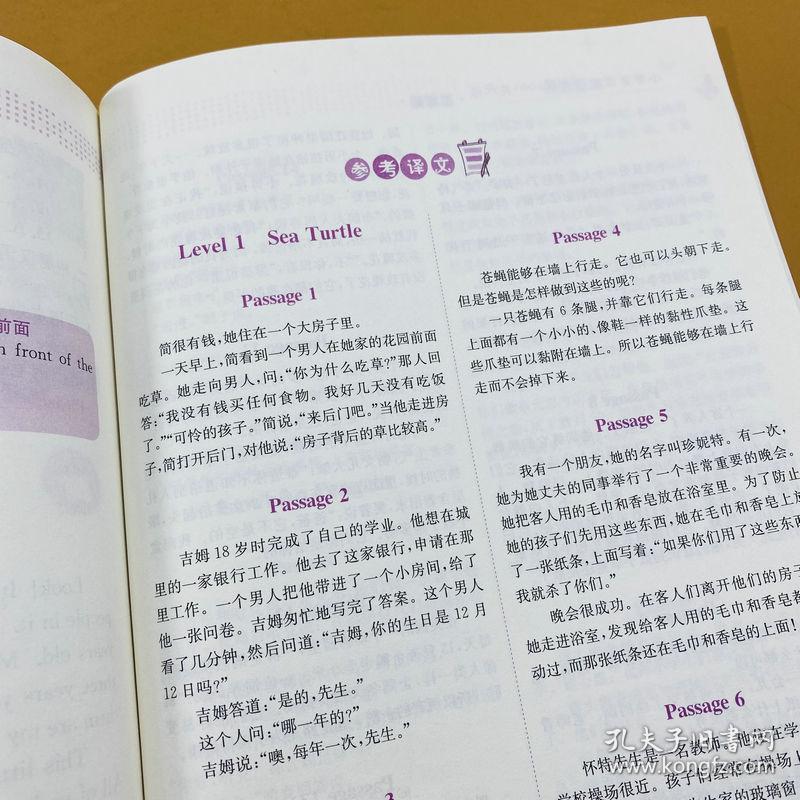 前面
n front of the
参考译文
Level 1 Sea Turtle
Passage 1
简很有钱,她住在一个大房子里。
一天早上,简看到一个男人在她家的花园前面
吃草。她走向男人,问:“你为什么吃草?”那人回
答:“我没有钱买任何食物。我好几天没有吃饭
了。”“可怜的孩子。”简说,“来后门吧。”当他走进房
子,简打开后门,对他说:“房子背后的草比较高。”
Passage 2
吉姆 18 岁时完成了自己的学业。他想在城
里的一家银行工作。他去了这家银行,申请在那
里工作。一个男人把他带进了一个小房间,给了
他一张问卷。吉姆匆忙地写完了答案。这个男人
看了几分钟,然后问道:“吉姆,你的生日是 12 月
12 日吗?”
吉姆答道:“是的,先生。”
这个人问:“哪一年的?”
吉姆说:“噢,每年一次,先生。”
3
Passage 4
苍蝇能够在墙上行走。它也可以头朝下走。
但是苍蝇是怎样做到这些的呢?
一只苍蝇有 6 条腿,并靠它们行走。每条腿
上面都有一个小小的,像鞋一样的黏性爪垫。这
些爪垫可以黏附在墙上。所以苍蝇能够在墙上行
走而不会掉下来。
Passage 5
我有一个朋友,她的名字叫珍妮特。有一次,
她为她丈夫的同事举行了一个非常重要的晚会。
她把客人用的毛巾和香皂放在浴室里。为了防止
她的孩子们先用这些东西,她在毛巾和香皂上放
了一张纸条,上面写着:“如果你们用了这些东西
我就杀了你们。”
晚会很成功。在客人们离开他们的房子
她走进浴室,发现给客人用的毛巾和香皂都
动过,而那张纸条还在毛巾和香皂的上面!
Passage 6
怀特先生是一名教师。他住在学
学校操场很近。孩子们经常在操场上
家的玻璃窗
孔夫子旧书网
www.kongfz.com